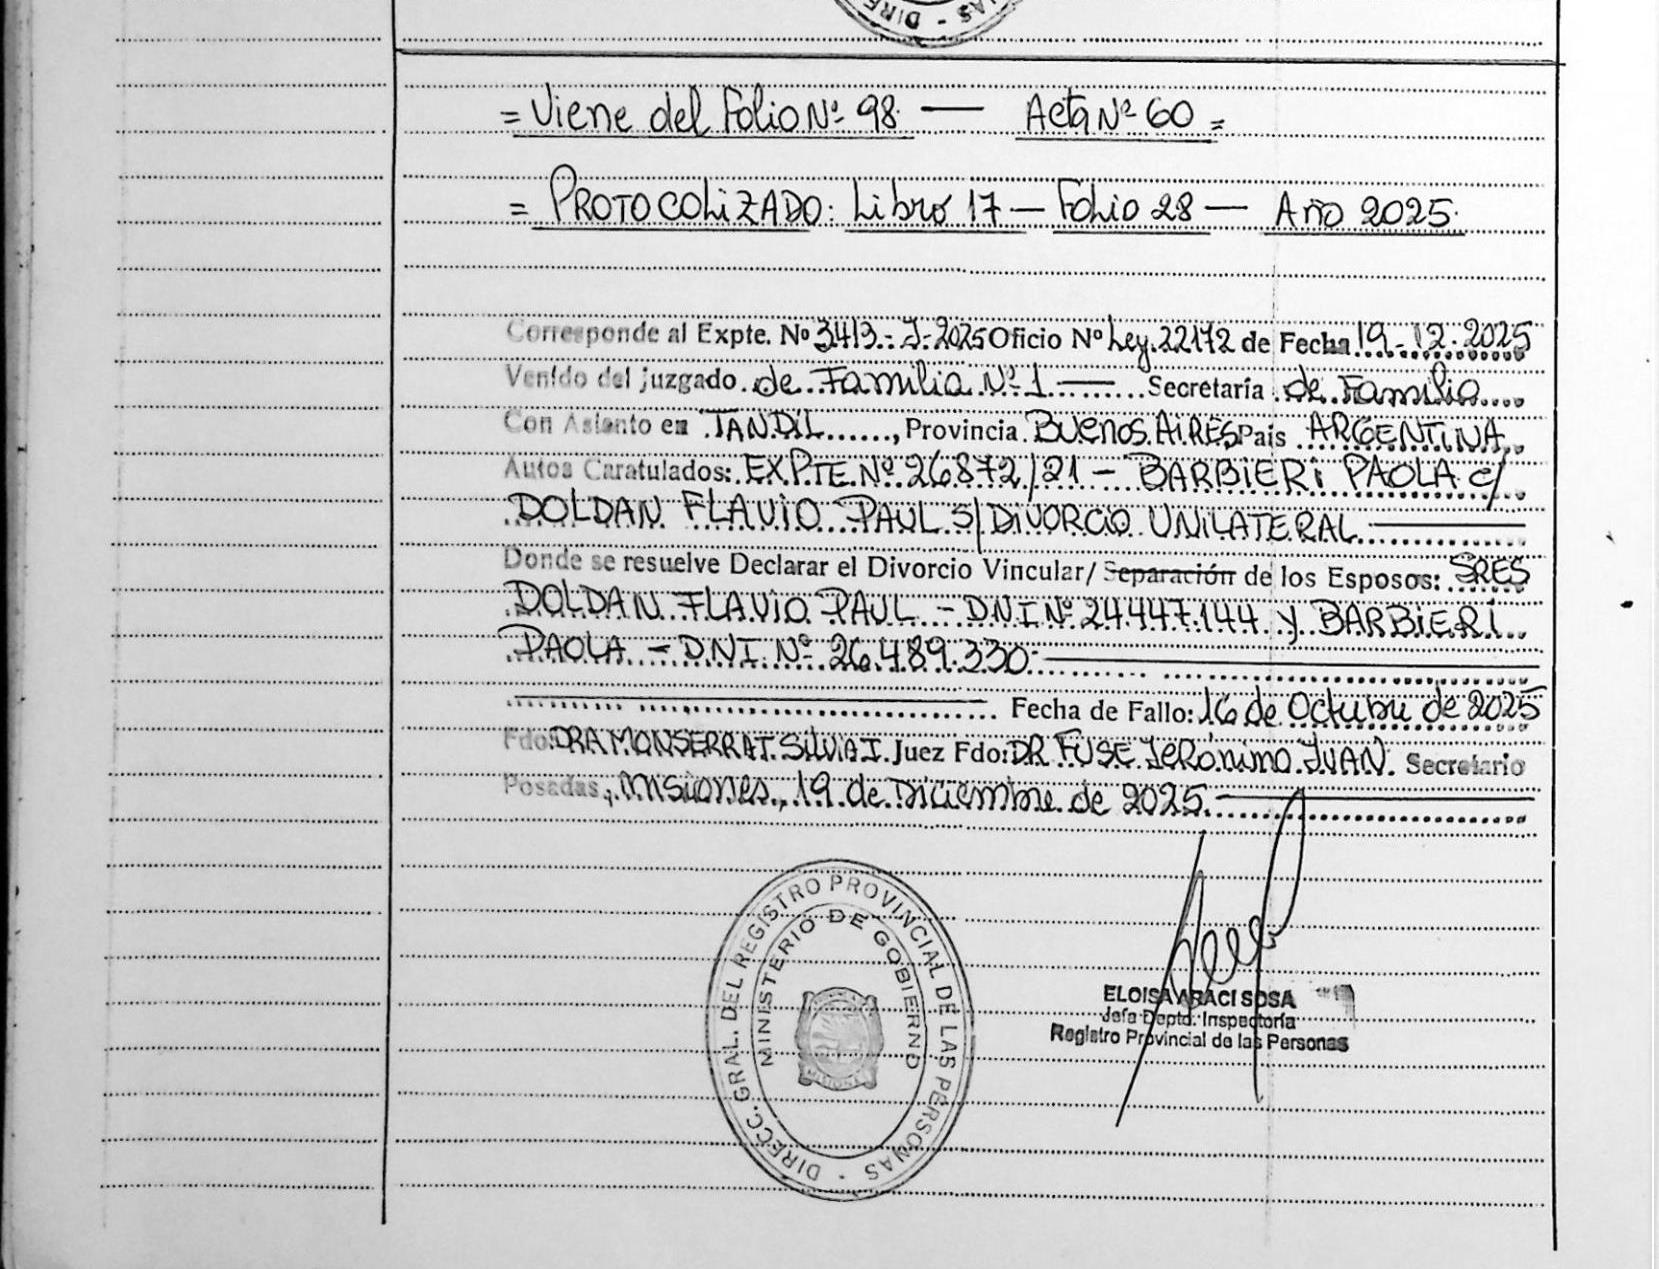 DIRE
NAS -
= Viene del Folio Nº 98 — Acta Nº 60 =
= PROTOCOLIZADO: Libro 17 — Folio 28 — Año 2025.
Corresponde al Expte. Nº 3413.-J-2025 Oficio Nº Ley.22172 de Fecha 19-12-2025
Venido del juzgado de Familia Nº 1 —— Secretaría de Familia
Con Asiento en TANDIL, Provincia BUENOS AIRES País ARGENTINA
Autos Caratulados: EXPTE. Nº 26.872/21 - BARBIERI PAOLA c/
DOLDAN FLAVIO PAUL S/ DIVORCIO UNILATERAL
Donde se resuelve Declarar el Divorcio Vincular/ Separación de los Esposos: SRES
DOLDAN FLAVIO PAUL - DNI Nº 24.447.144 y BARBIERI
PAOLA - DNI Nº 26.489.330.
Fecha de Fallo: 16 de Octubre de 2025
Fdo: DRA MONSERRAT SILVIA I. Juez Fdo: DR FUSE JERÓNIMO JUAN. Secretario
Posadas, Misiones, 19 de Diciembre de 2025.
DIRECC. GRAL. DEL REGISTRO PROVINCIAL DE LAS PERSONAS -
MINISTERIO DE GOBIERNO
MISIONES
ELOISA ARACI SOSA
Jefa Depto. Inspectoría
Registro Provincial de las Personas